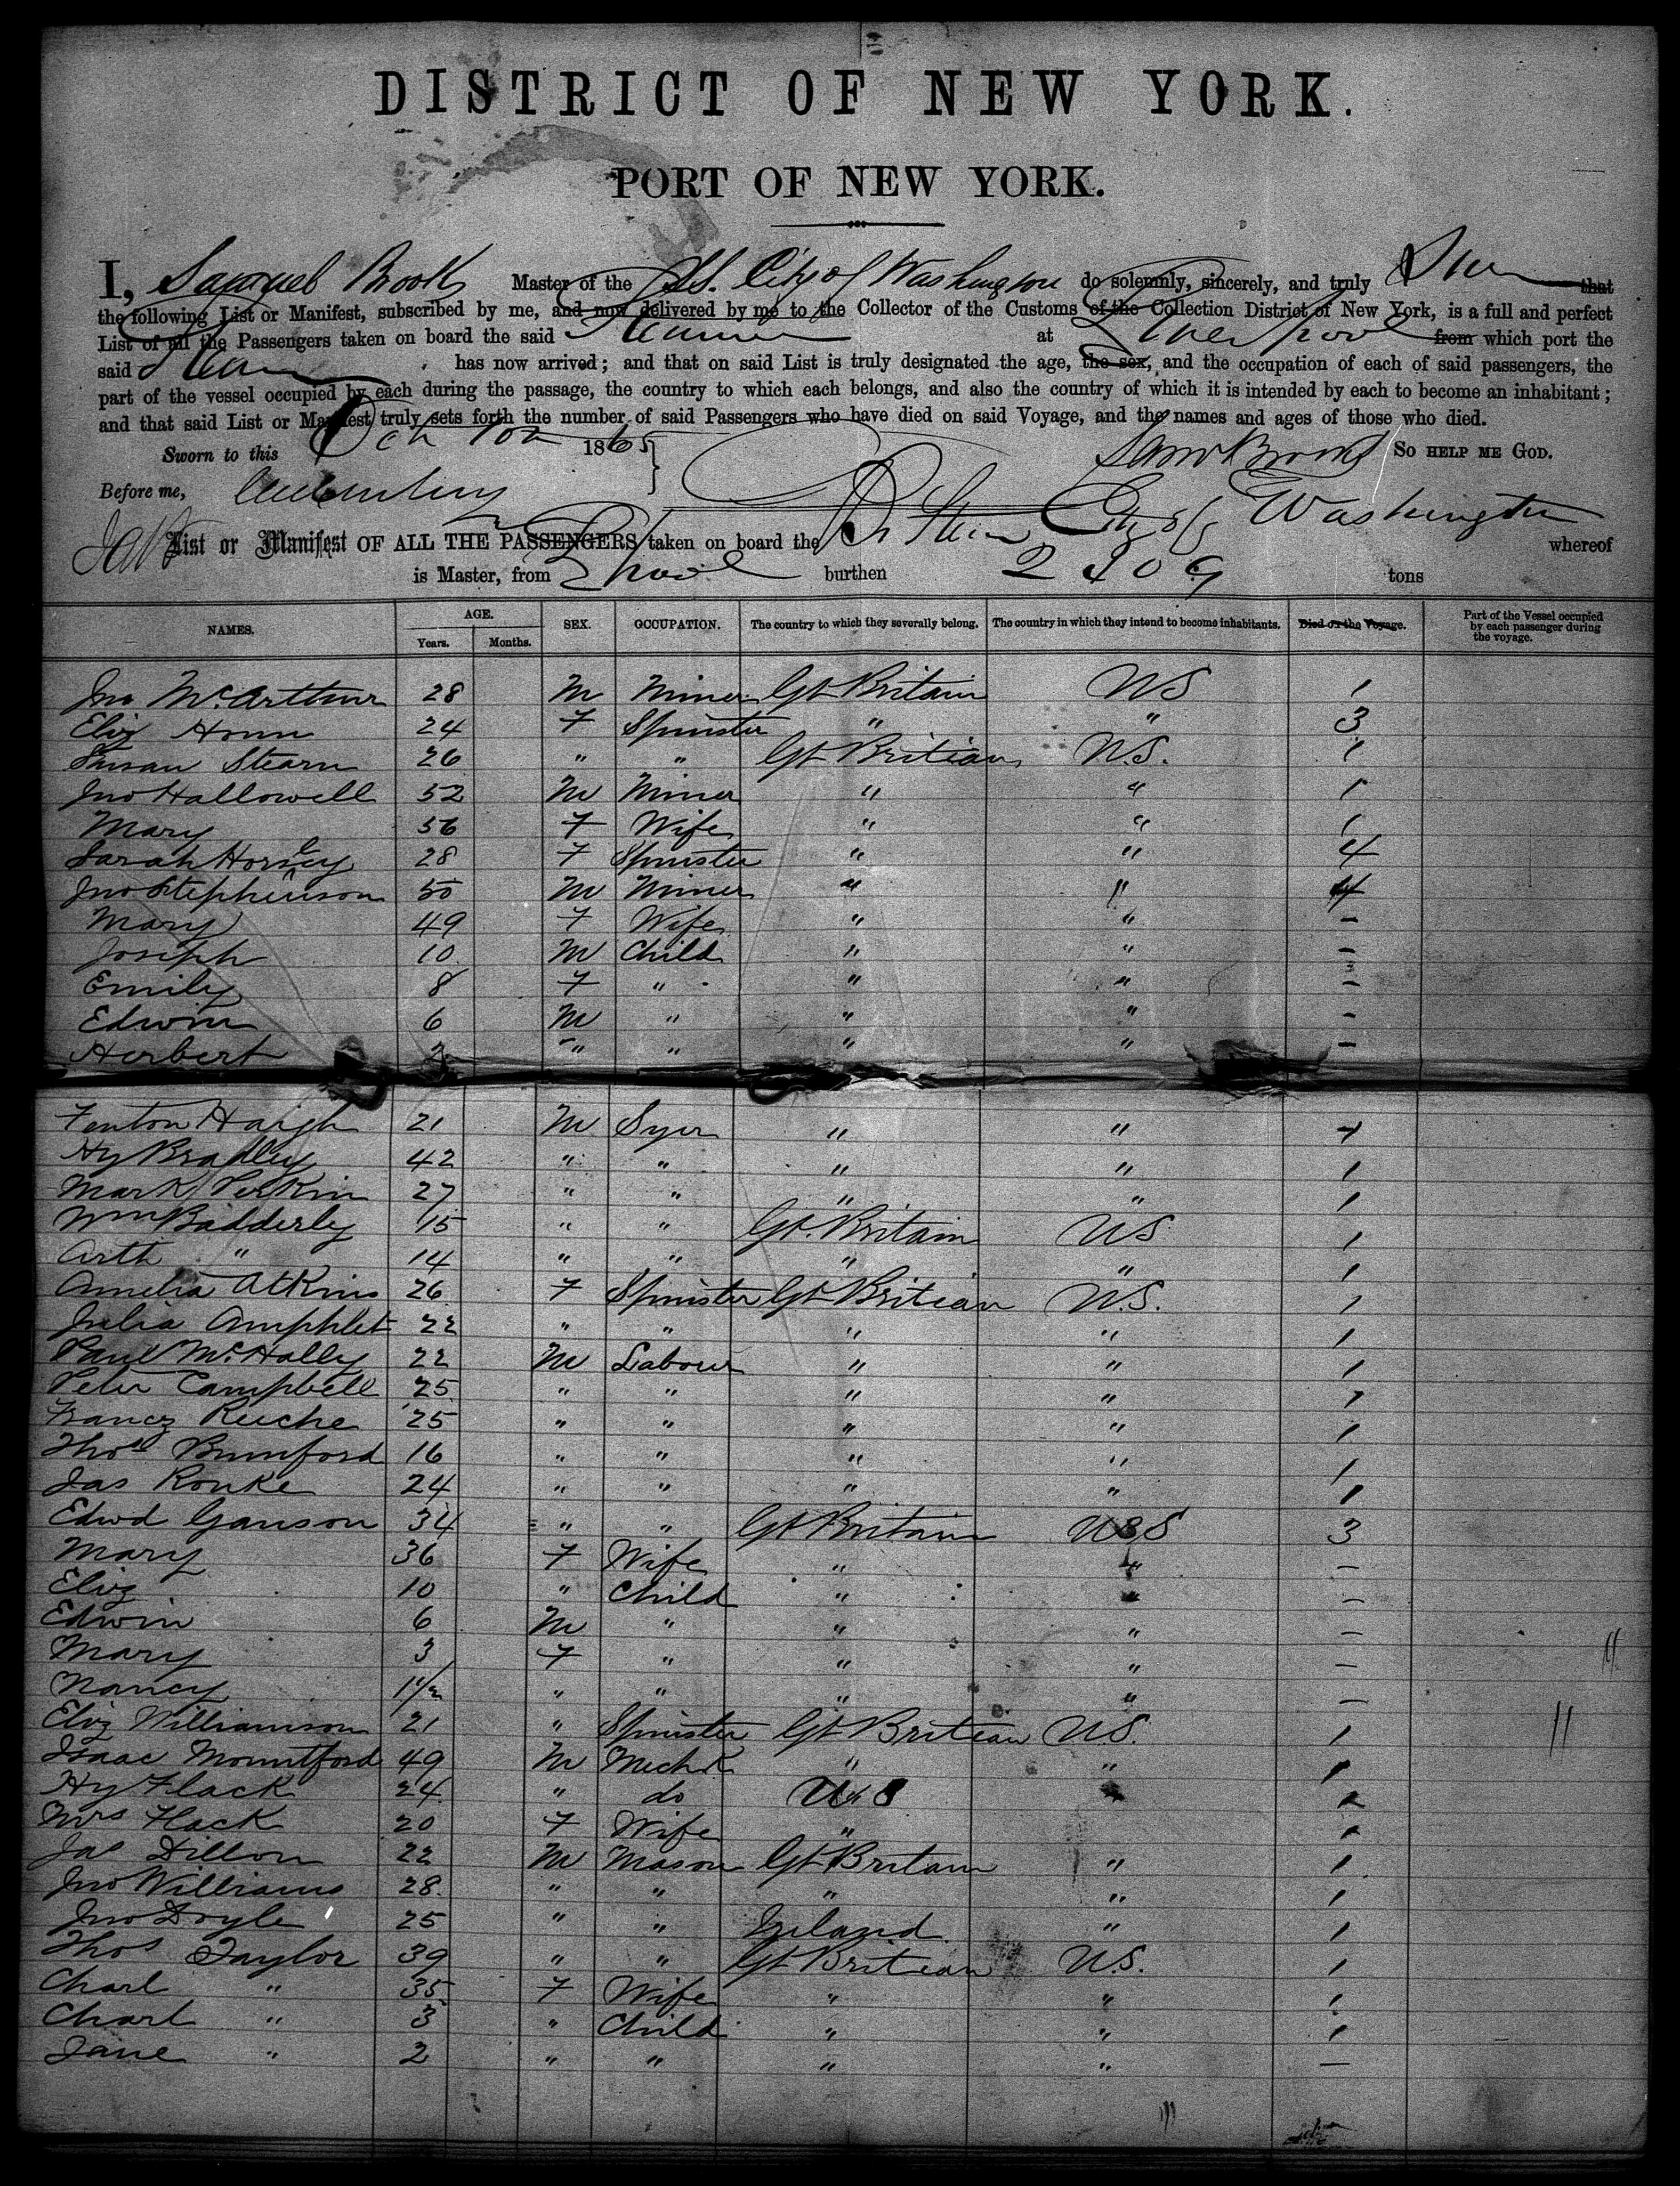 DISTRICT OF NEW YORK.
PORT OF NEW YORK.
I, Samuel Brooks Master of the SS. City of Washington do solemnly, sincerely, and truly Swear that
the following List or Manifest, subscribed by me, and now delivered by me to the Collector of the Customs of the Collection District of New York, is a full and perfect
List of all the Passengers taken on board the said Steamer at Liverpool from which port the
said Steamer has now arrived; and that on said List is truly designated the age, the sex, and the occupation of each of said passengers, the
part of the vessel occupied by each during the passage, the country to which each belongs, and also the country of which it is intended by each to become an inhabitant;
and that said List or Manifest truly sets forth the number of said Passengers who have died on said Voyage, and the names and ages of those who died.
Sworn to this Oct 1865 Saml Brooks SO HELP ME GOD.
Before me,
List or Manifest OF ALL THE PASSENGERS taken on board the Br Steam City of Washington whereof
is Master, from L'pool burthen tons
NAMES. AGE. Years. Months. SEX. OCCUPATION. The country to which they severally belong. The country in which they intend to become inhabitants. Died on the Voyage. Part of the Vessel occupied by each passenger during the voyage.
Jno McArthur 28 M Miner Gt Britain US 1
Eliz 24 F Spinster " " 3
Susan Stearn 26 " " Gt Britian U.S. 1
Jno Hallowell 52 M Miner " " 1
Mary 56 F Wife " " 1
Sarah Horsey 28 F Spinster " " 4
Jno Stephenson 50 M Miner " " 4
Mary 49 F Wife " " -
Joseph 10 M Child " " -
Emily 8 F " " " -
Edwin 6 M " " " -
Herbert 2 " " " " -
Fenton Haigh 21 M Syer " " 1
Hy Bradley 42 " " " " 1
Mark Perkin 27 " " " " 1
Wm Badderley 15 " " Gt. Britain US 1
Arth " 14 " " " " 1
Amelia Atkins 26 F Spinster Gt Britian U.S. 1
Julia Amphlet 22 " " " " 1
Paul McHally 22 M Labour " " 1
Peter Campbell 25 " " " " 1
Francz Reiche 25 " " " " 1
Thos Bumford 16 " " " " 1
Jas Ronke 24 " " " " 1
Edwd Ganson 34 " " Gt Britain US 3
Mary 36 F Wife " " -
Eliz 10 " Child " " -
Edwin 6 M " " " -
Mary 3 F " " " -
Nancy 1 1/2 " " " " -
Eliz Williamson 21 " Spinster Gt Britian US. 1
Isaac Mountford 49 M Mechk " " 1
Hy Flack 24 " do US "
Mrs Flack 20 F Wife " 1
Jas Dillon 22 M Mason Gt Britain " 1
Jno Williams 28 " " " " 1
Jno Doyle 25 " " Ireland " 1
Thos Taylor 39 " " Gt Britian U.S. 1
Charl " 35 F Wife " " 1
Charl " 3 " Child " " 1
Jane " 2 " " " " -